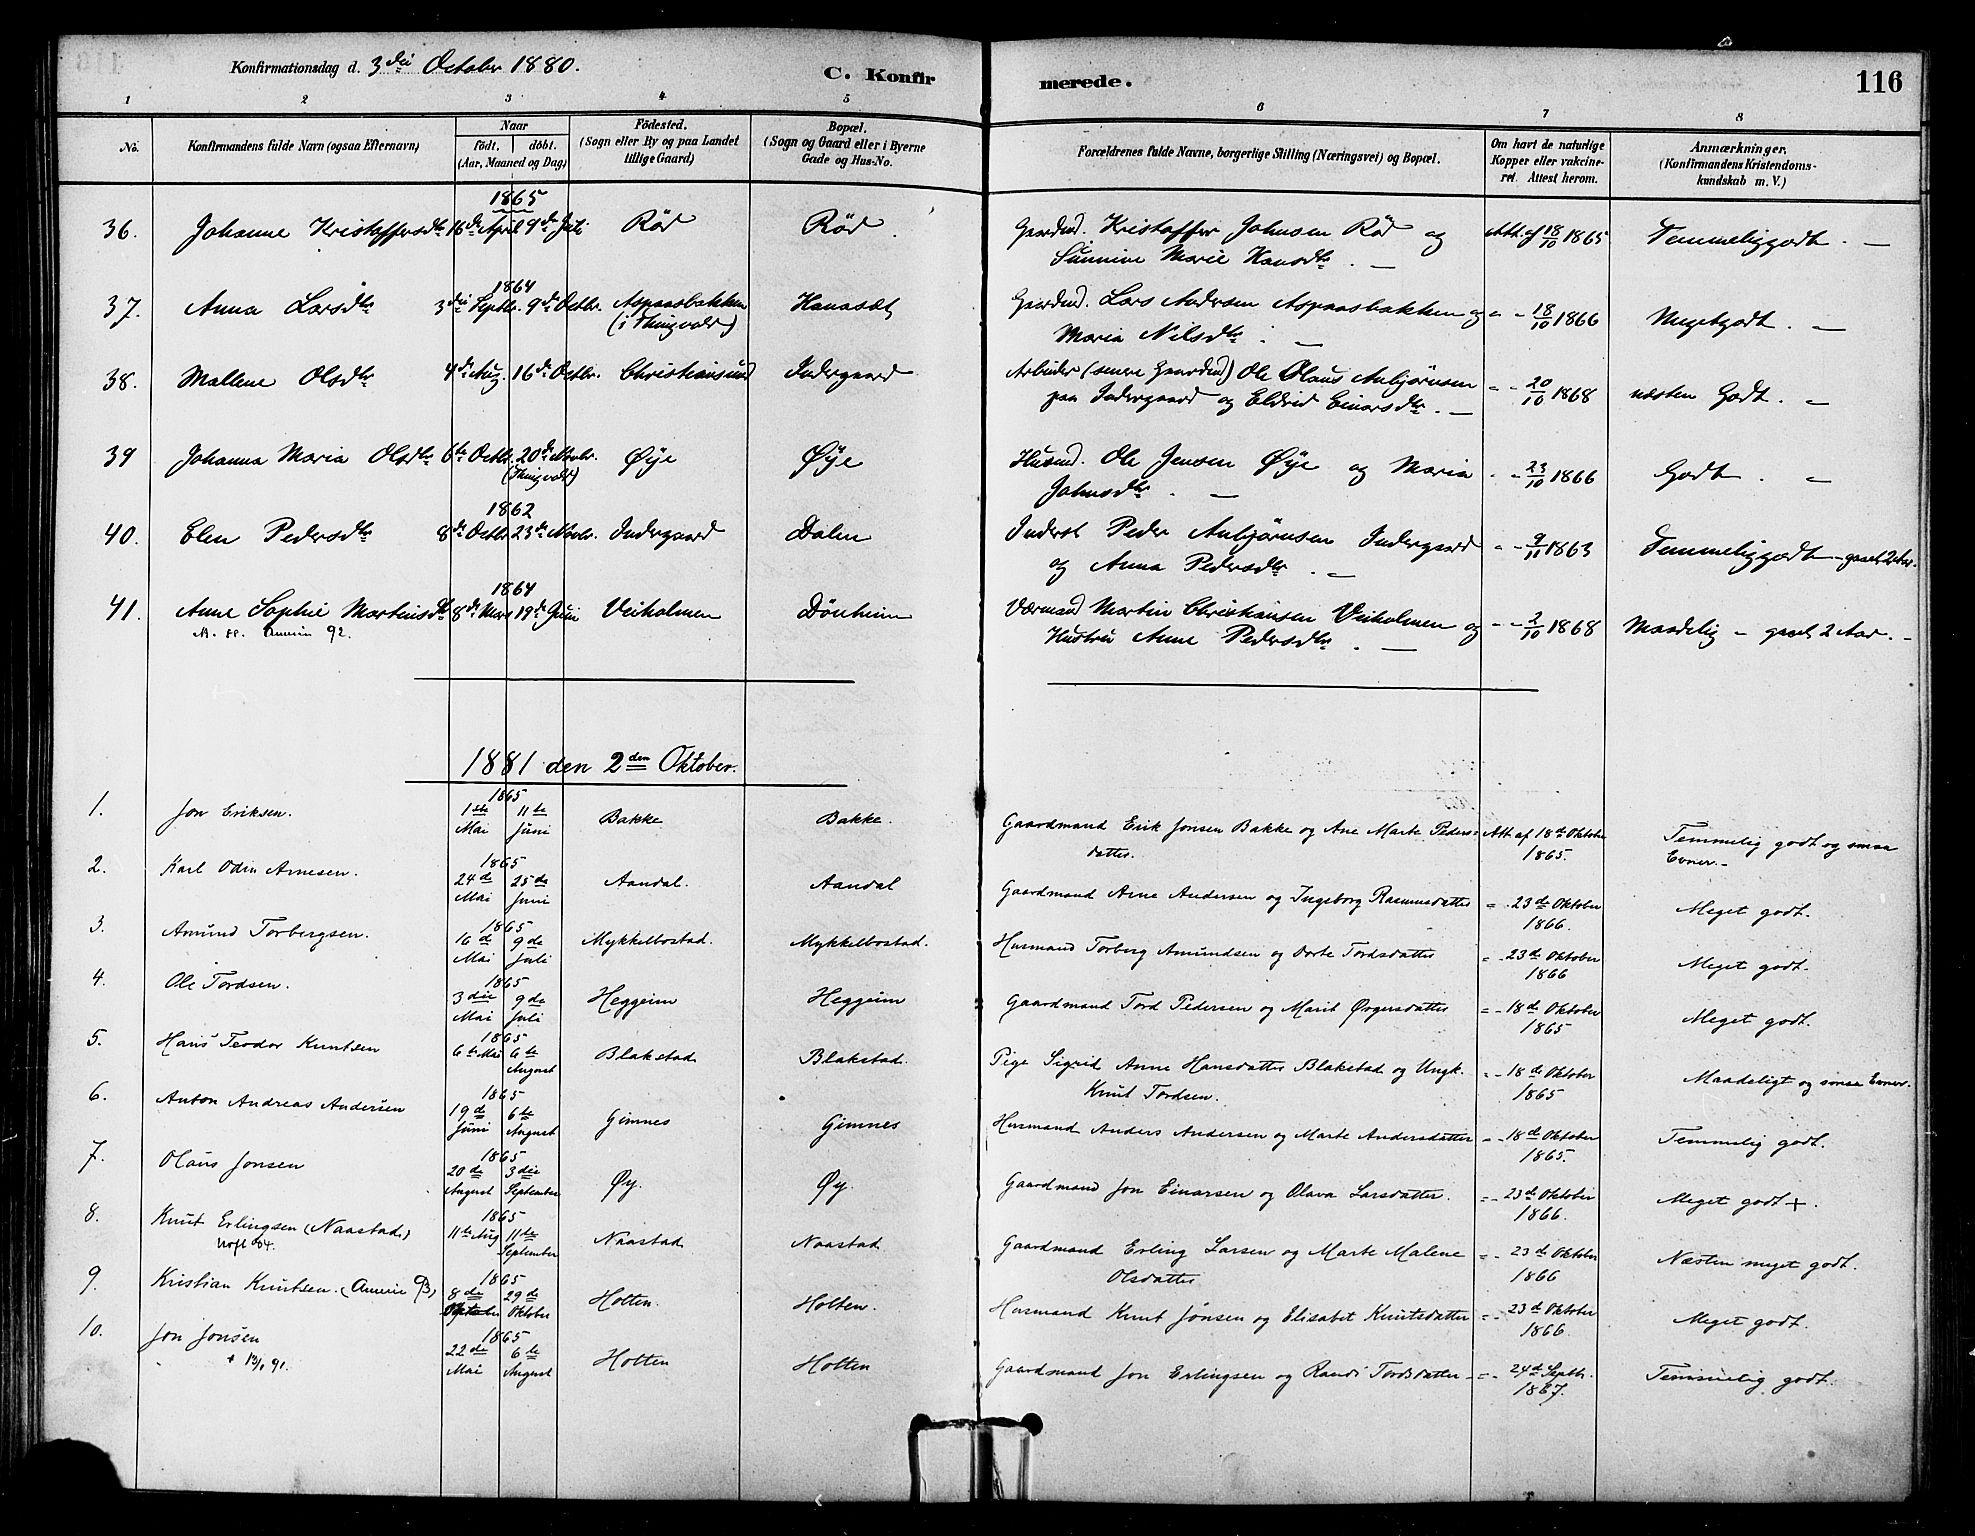 Konfirmationsdag d. 3die October 1880.
C. Konfirmerede.
116
1 2 3 4 5 6 7 8
No.
Konfirmandens fulde Navn (ogsaa Efternavn)
Naar
födt. döbt.
(Aar, Maaned og Dag)
Födested.
(Sogn eller By og paa Landet
tillige Gaard)
Bopæl.
(Sogn og Gaard eller i Byerne
Gade og Hus-No.
Forældrenes fulde Navne, borgerlige Stilling (Næringsvei) og Bopæl.
Om havt de naturlige
Kopper eller vakcine-
ret. Attest herom.
Anmærkninger.
(Konfirmandens Kristendoms-
kundskab m. V.)
1865
36. Johanne Kristoffersdtr 16de April 9de Juli Rød Rød. Gaardmd. Kristoffer Johnsen Rød og Att. af 18/10 1865 Temmelig godt. —
Sunnive Marie Hansdtr. —
1864
37. Anna Larsdtr 3die Septbr. 9de Octbr. Aspaasbakken Kanasæt Gaardmd. Lars Andersen Aspaasbakken og " - 18/10 1866 Meget godt. —
(i Thingvold) Maria Nilsdtr. —
38. Mallene Olsdtr 4de Aug. 16de Octbr. Christiansund Indergaard Arbeider (senere Gaardmd) Ole Olaus Anbjørnsen " - 20/10 1868 næsten Godt. —
paa Indergaard og Eldrid Einarsdtr. —
39 Johanna Maria Olsdtr 6te Octbr. 20de Novbr. Øye Øye Husmd. Ole Jensen Øye og Maria " - 23/10 1866 Godt. —
(Thingvold) Johnsdtr. —
1862
40. Elen Pedersdtr 8de Octbr. 23de Novbr. Indergaard Dalen Inderst Peder Anbjørnsen Indergaard " - 9/11 1863 Temmelig godt - gaaet 2 Aar.
og Anna Pedersdtr. —
1864
41. Anne Sophie Martinusdtr 8de Mars 19de Juni Veiholmen Dönheim Værmand Martin Christiansen Veiholmen og " - 2/10 1868 Maadelig - gaaet 2 Aar. -
92. Hustru Anne Pedersdtr. —
1881 den 2den Oktober.
1865
1. Jon Eriksen. 1ste Mai 11te Juni Bakke Bakke. Gaardmand Erik Jonsen Bakke og Ane Marte Peders- Att. af 18de Oktober Temmelig godt og smaa
datter. 1865. Evner. -
1865
2. Karl Odin Arnesen. 24de Mai 25de Juni Aandal. Aandal Gaardmand Arne Andersen og Ingeborg Rasmusdatter = - 23de Oktober Meget godt.
1866.
1865
3. Amund Torbergsen. 16de Mai 9de Juli Mykkelbostad. Mykkelbostad. Husmand Torberg Amundsen og Dorte Tordsdatter = - 23de Oktober Meget godt.
1866
1865
4. Ole Tordsen. 3die Mai 9de Juli Heggeim Heggeim Gaardmand Tord Pedersen og Marit Ørgersdatter = - 18de Oktober Meget godt.
1865
1865
5. Hans Teodor Knutsen 6te Mai 6te August Blakstad Blakstad. Pige Sigrid Anne Hansdatter Blakstad og Ungk. = - 18de Oktober Maadeligt og smaa Evner.
Knut Tordsen. 1865
1865
6. Anton Andreas Andersen 19de Juni 6te August Gimnes Gimnes Husmand Anders Andersen og Marte Andersdatter = - 18de Oktober Temmelig godt.
1865.
1865
7. Olaus Jonsen 20de August 3die September Øy. Øy. Gaardmand Jon Einarsen og Olava Larsdatter. = - 23de Oktober Meget godt +.
1866.
1865
8. Knut Erlingsen (Naastad) 11te Aug 11te September Naastad Naastad Gaardmand Erling Larsen og Marte Malene = - 23de Oktober Næsten meget godt.
Olsdatter 1866
1865
9. Kristian Knutsen. 8de Oktober 29de Oktober Holten. Holten. Husmand Knut Jonsen og Elisabet Knutsdatter = - 23de Oktober Meget godt.
1866.
1865
10. Jon Jonsen 22de Mai 6te August Holten Holten Gaardmand Jon Erlingsen og Randi Tordsdatter = - 24de Septbr. Temmelig godt.
91. 1867.